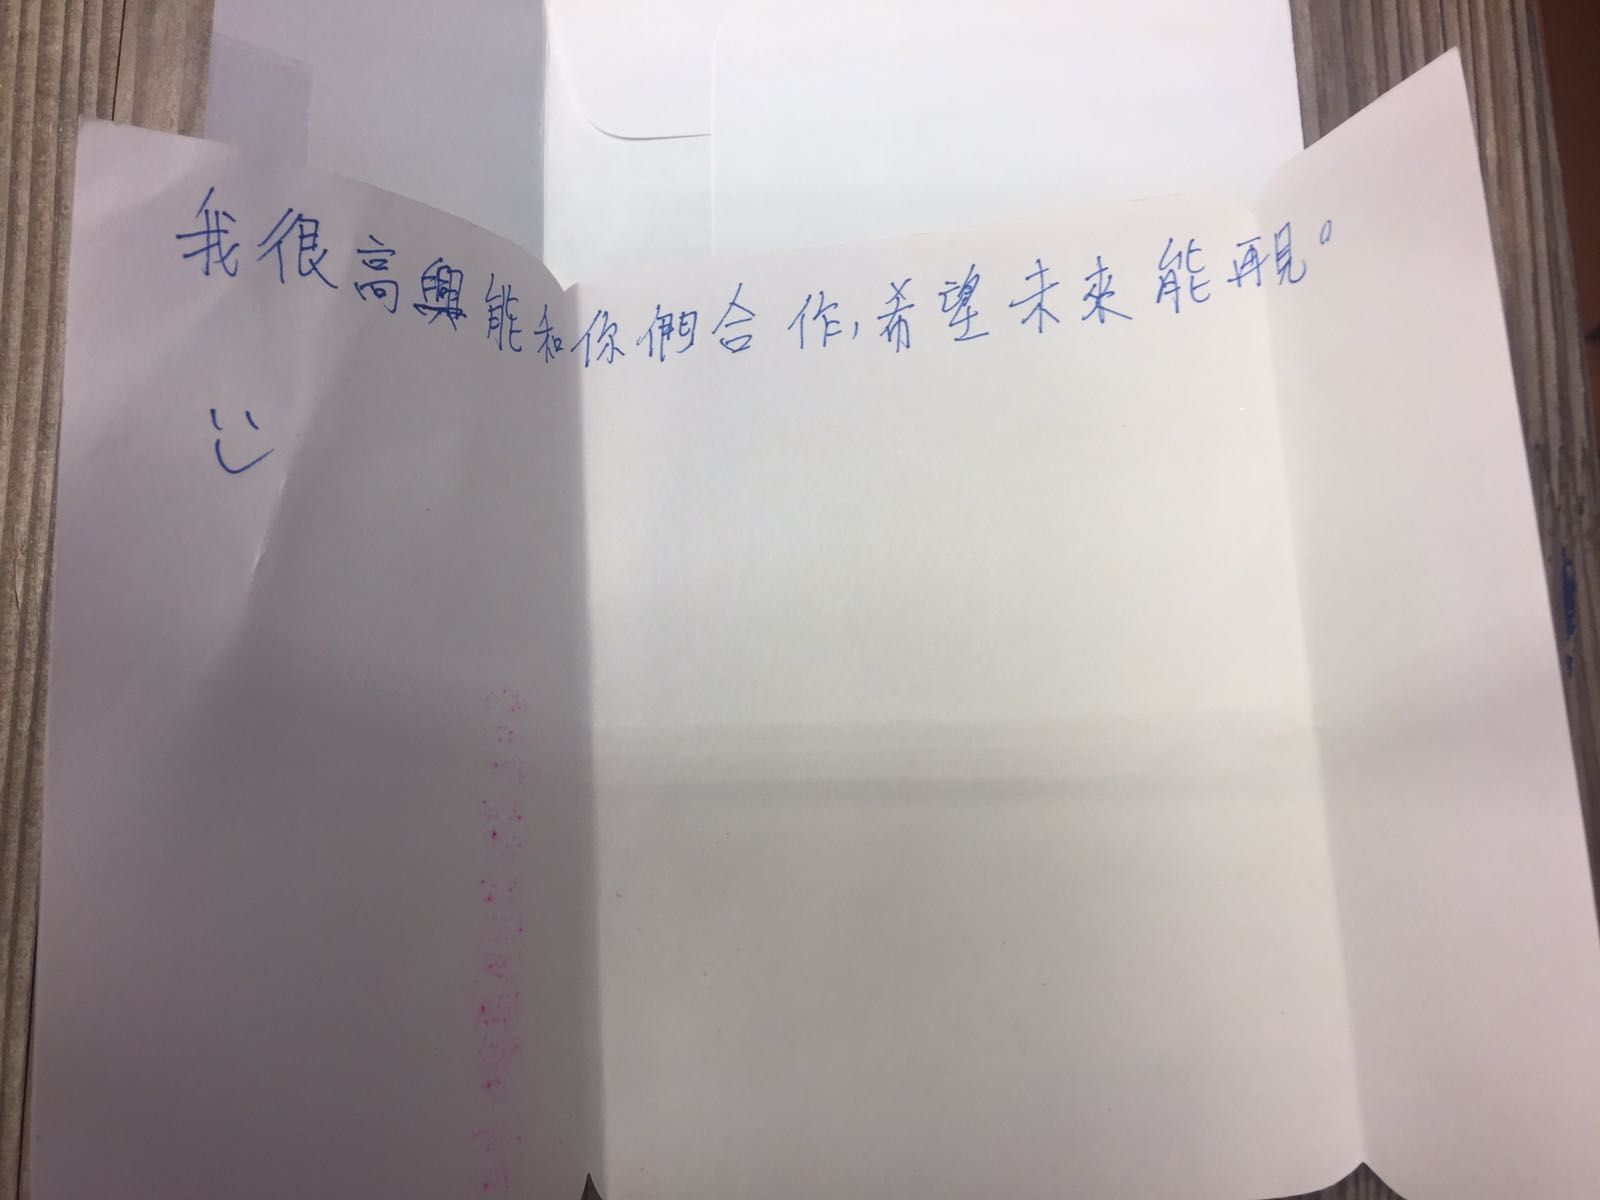 我很高興能和你們合作,希望未來能再見。